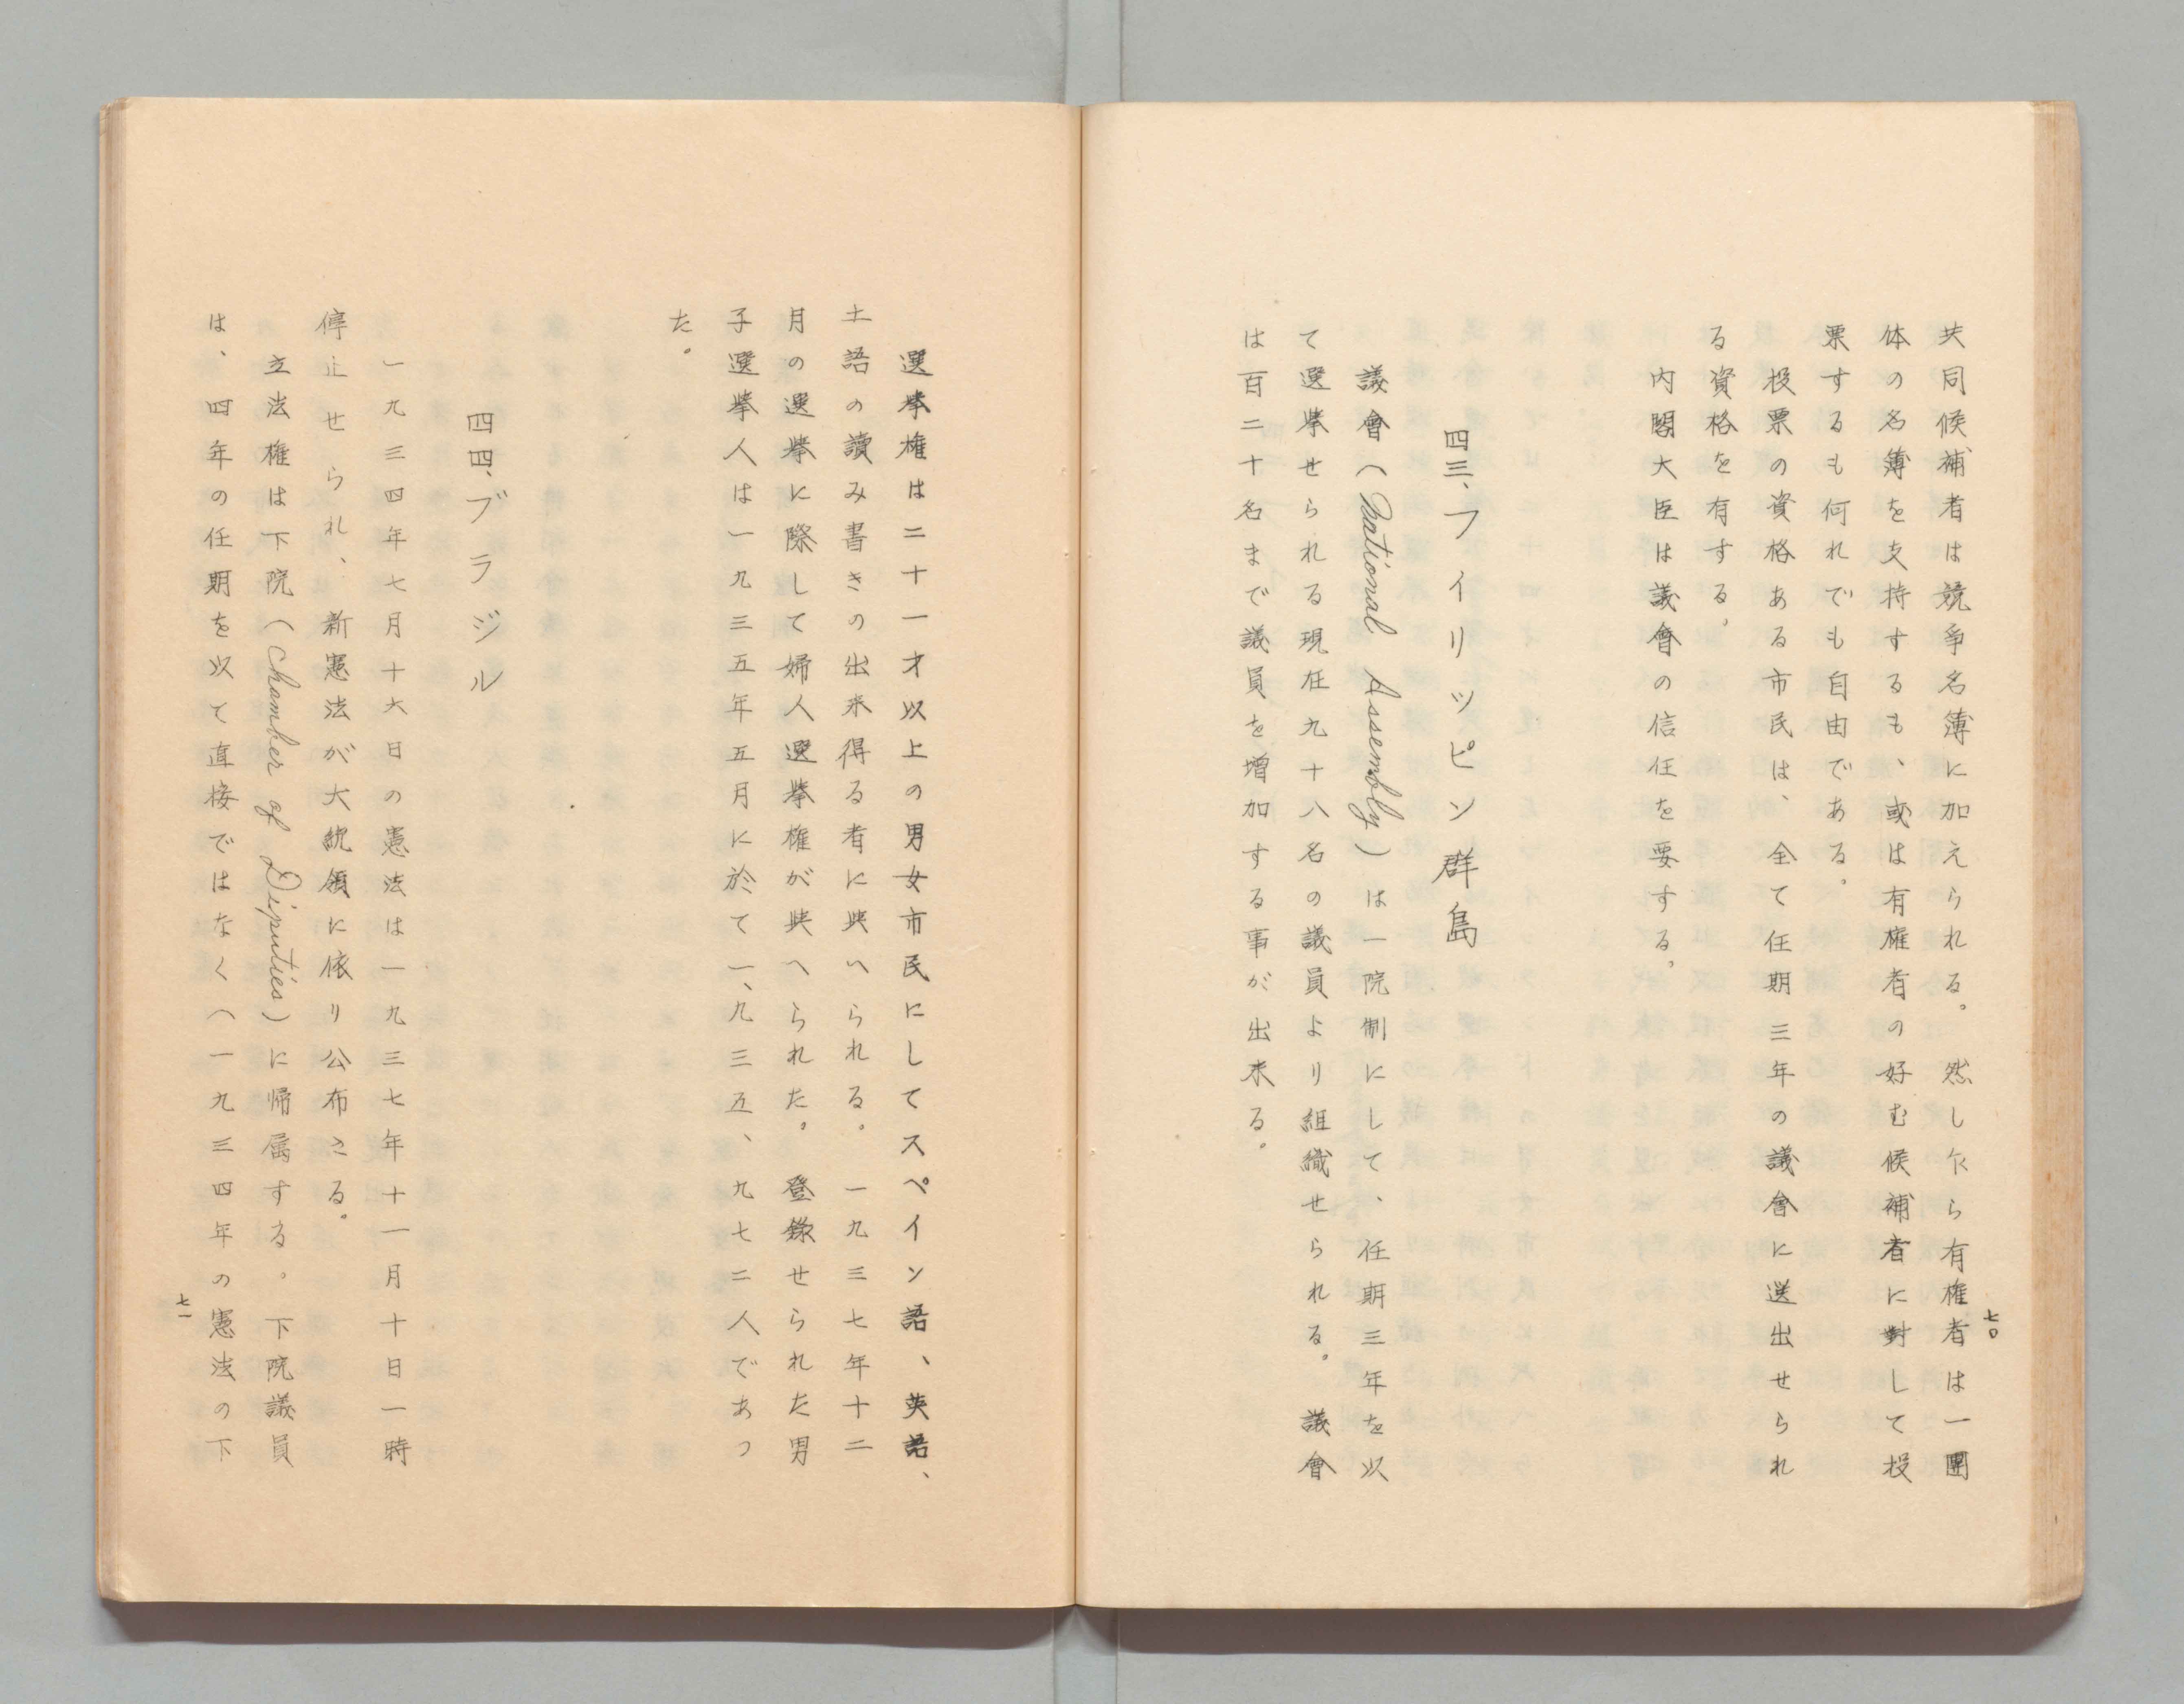 七〇
共同候補者は競爭名簿に加えられる。然し乍ら有権者は一團
体の名簿を支持するも、或は有権者の好む候補者に對して投
票するも何れでも自由である。
投票の資格ある市民は、全て任期三年の議會に選出せられ
る資格を有する。
内閣大臣は議會の信任を要する。
四三、フイリッピン群島
議會(National Assembly)は一院制にして、任期三年を以
て選挙せられる現在九十八名の議員より組織せられる。議會
は百二十名まで議員を増加する事が出来る。
選挙権は二十一才以上の男女市民にしてスペイン語、英語、
土語の讀み書きの出来得る者に與へられる。一九三七年十二
月の選挙に際して婦人選挙権が與へられた。登錄せられた男
子選挙人は一九三五年五月に於て一、九三五、九七二人であつ
た。
四四、ブラジル
一九三四年七月十六日の憲法は一九三七年十一月十日一時
停止せられ、新憲法が大統領に依り公布さる。
立法権は下院(Chamber of Diputies)に帰属する。下院議員
は、四年の任期を以て直接ではなく(一九三四年の憲法の下
七一